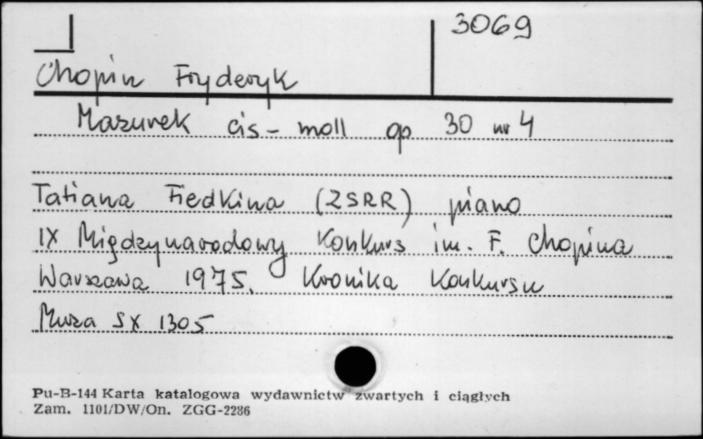 3069
Chopin Fryderyk
Mazurek cis-moll op 30 nr 4
Tatiana Fiedkina (ZSRR) piano
IX Międzynarodowy Konkurs im. F. Chopina
Warszawa 1975. Kronika Konkursu
Muza SX 1305
Pu-B-144 Karta katalogowa wydawnictw zwartych i ciągłych
Zam. 1101/DW/On. ZGG-2286